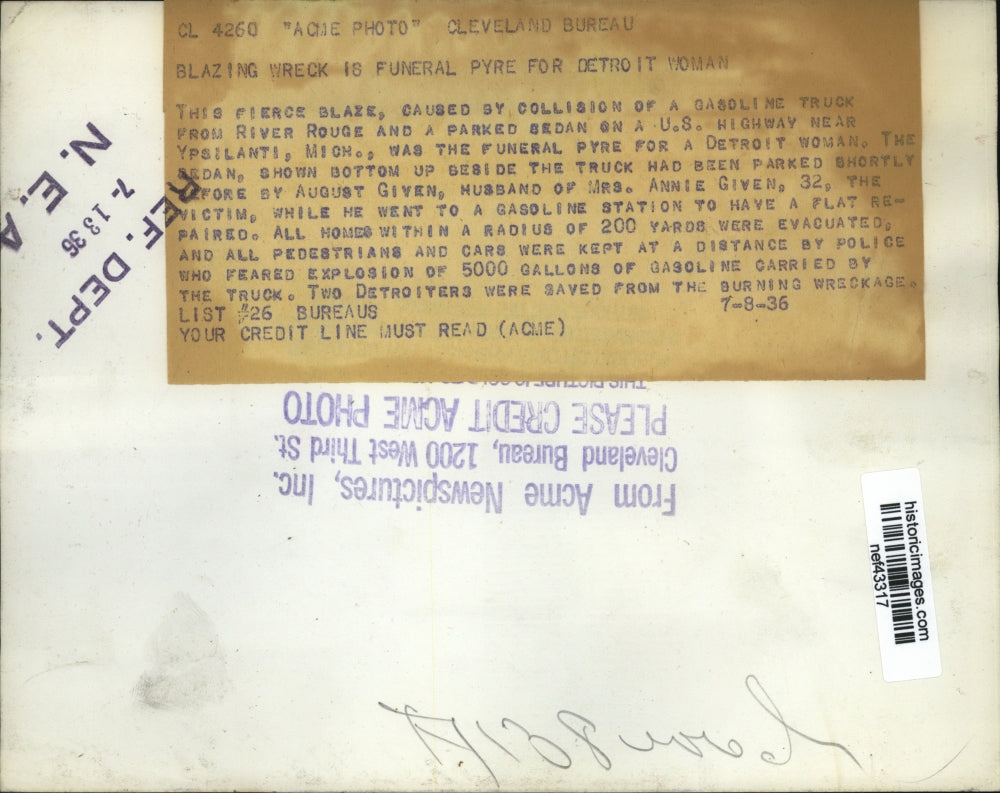 CL 4260 "ACME PHOTO" CLEVELAND BUREAU
BLAZING WRECK IS FUNERAL PYRE FOR DETROIT WOMAN
THIS FIERCE BLAZE, CAUSED BY COLLISION OF A GASOLINE TRUCK
FROM RIVER ROUGE AND A PARKED SEDAN ON A U.S. HIGHWAY NEAR
YPSILANTI, MICH., WAS THE FUNERAL PYRE FOR A DETROIT WOMAN. THE
SEDAN, SHOWN BOTTOM UP BESIDE THE TRUCK HAD BEEN PARKED SHORTLY
BEFORE BY AUGUST GIVEN, HUSBAND OF MRS. ANNIE GIVEN, 32, THE
VICTIM, WHILE HE WENT TO A GASOLINE STATION TO HAVE A FLAT RE-
PAIRED. ALL HOMES WITHIN A RADIUS OF 200 YARDS WERE EVACUATED,
AND ALL PEDESTRIANS AND CARS WERE KEPT AT A DISTANCE BY POLICE
WHO FEARED EXPLOSION OF 5000 GALLONS OF GASOLINE CARRIED BY
THE TRUCK. TWO DETROITERS WERE SAVED FROM THE BURNING WRECKAGE.
LIST #26 BUREAUS 7-8-36
YOUR CREDIT LINE MUST READ (ACME)
REF. DEPT.
7-13 36
N. E. A
From Acme Newspictures, Inc.
Cleveland Bureau, 1200 West Third St.
PLEASE CREDIT ACME PHOTO
THIS PICTURE IS
historicimages.com
nef43317